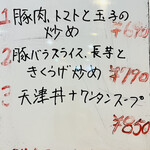 1 豚肉、トマトと玉子の
炒め ¥690
2 豚バラスライス、長芋と
きくらげ炒め ¥790
3 天津丼+ワンタンスープ
¥850